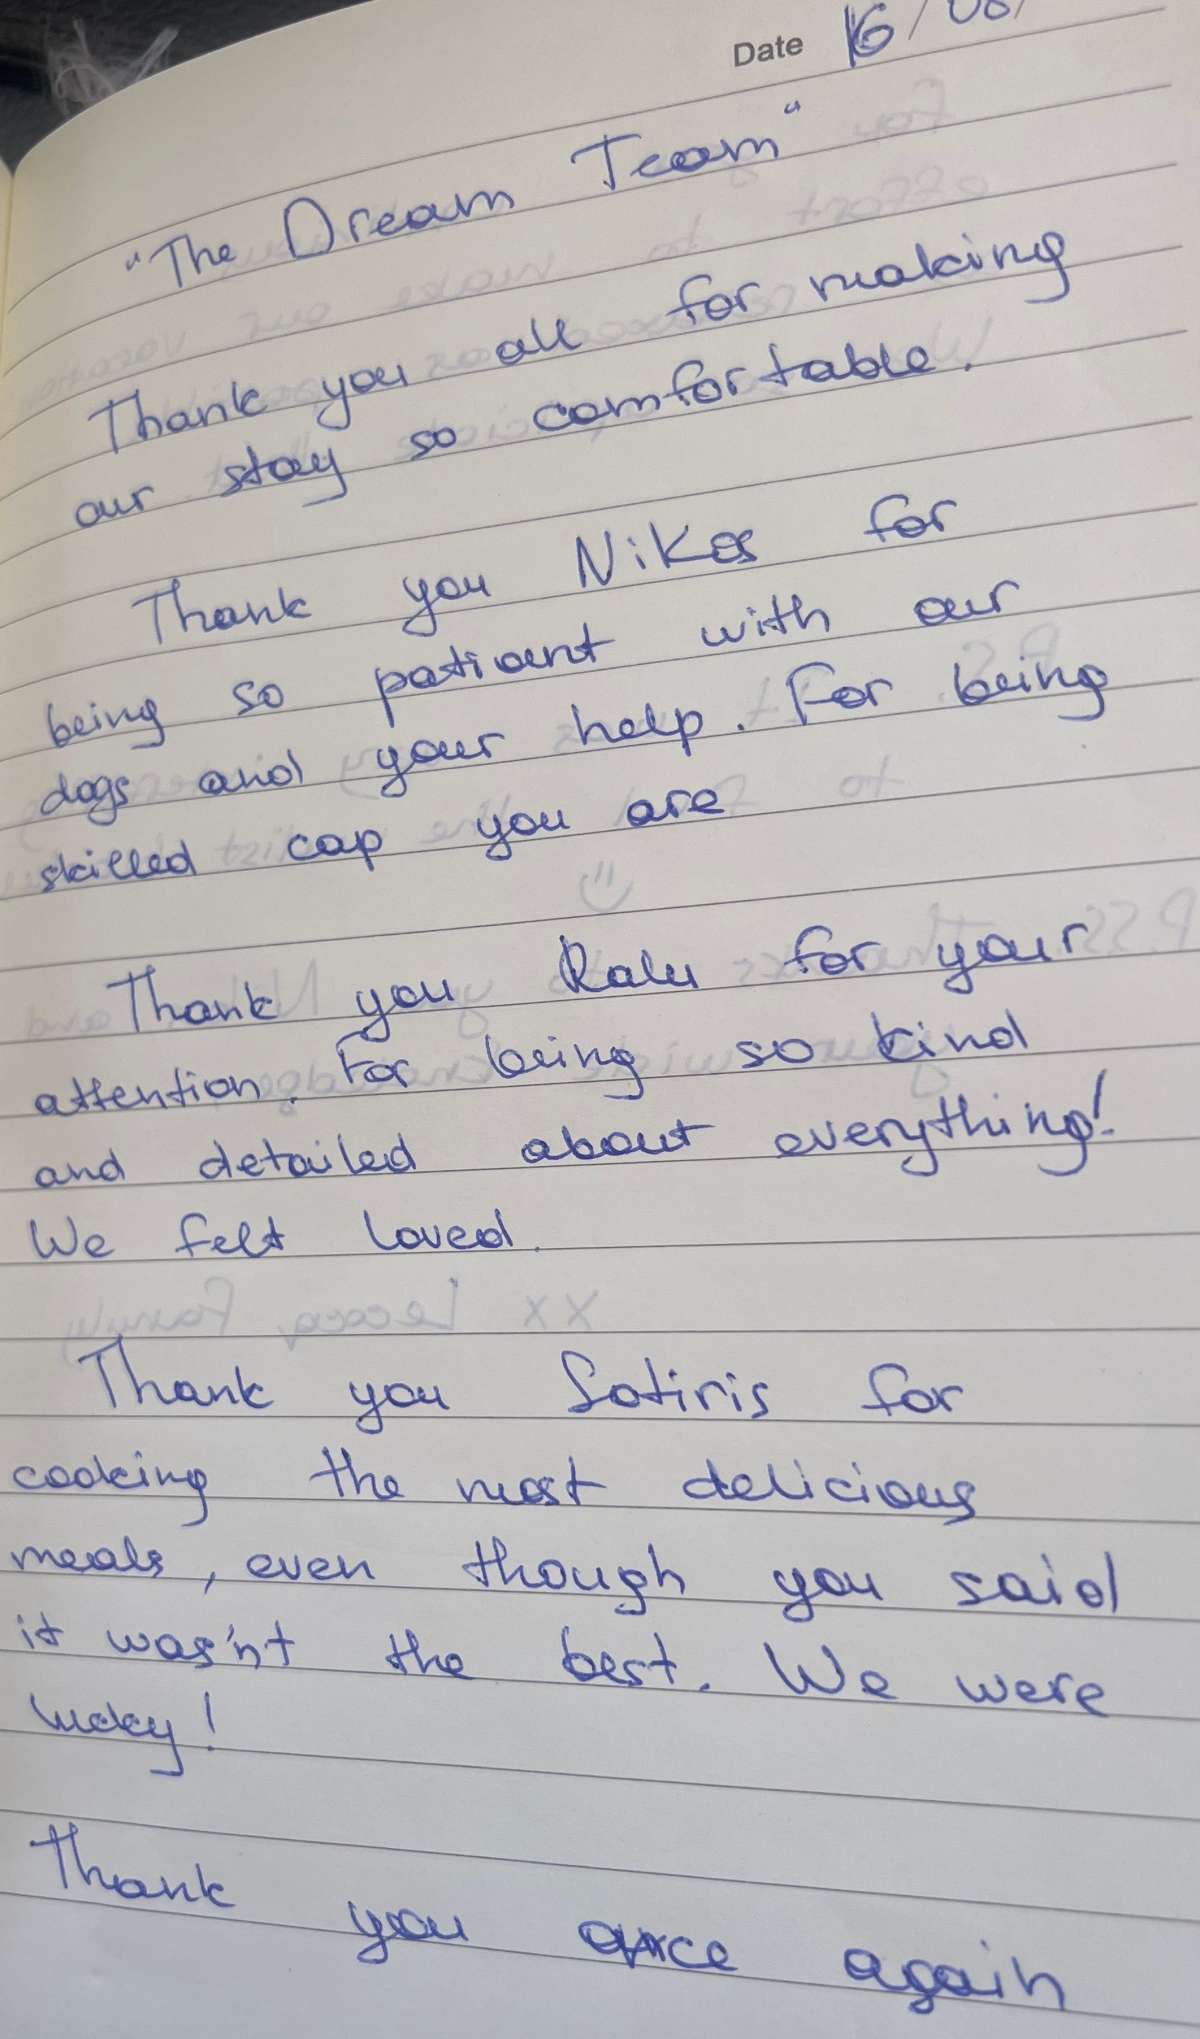 Date 16/06/
"The Dream Team"
Thank you all for making
our stay so comfortable.
Thank you Nikos for
being so patiant with our
dogs and your help. For being
skilled cap you are
Thank you Ralu for your
attention. For being so kind
and detailed about everything!
We felt loved.
Thank you Sotiris for
cooking the most delicious
meals, even though you said
it was'nt the best. We were
lucky!
Thank you once again